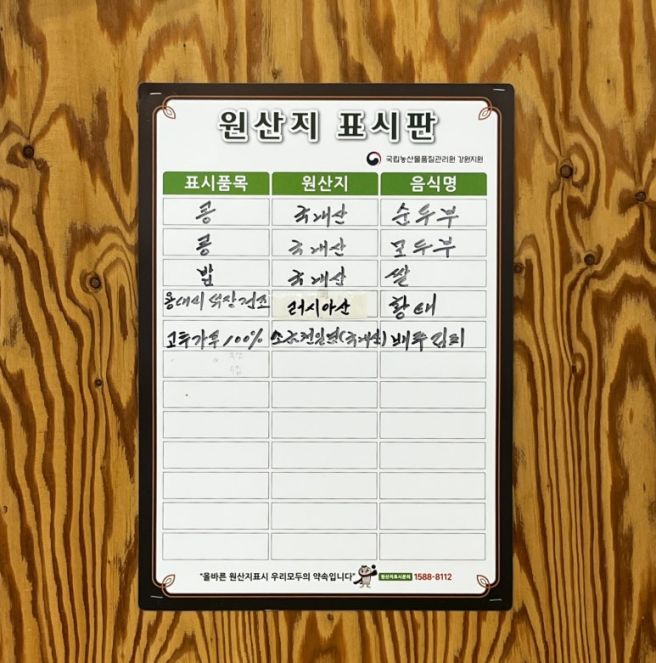 원산지 표시판
국립농산물품질관리원 강원지원
표시품목 원산지 음식명
콩 국내산 순두부
콩 국내산 모두부
밥 국내산 쌀
용대리 덕장건조 러시아산 황태
고추가루 100% 소금천일염(국내산) 배추김치
"올바른 원산지표시 우리모두의 약속입니다" 원산지표시문의 1588-8112